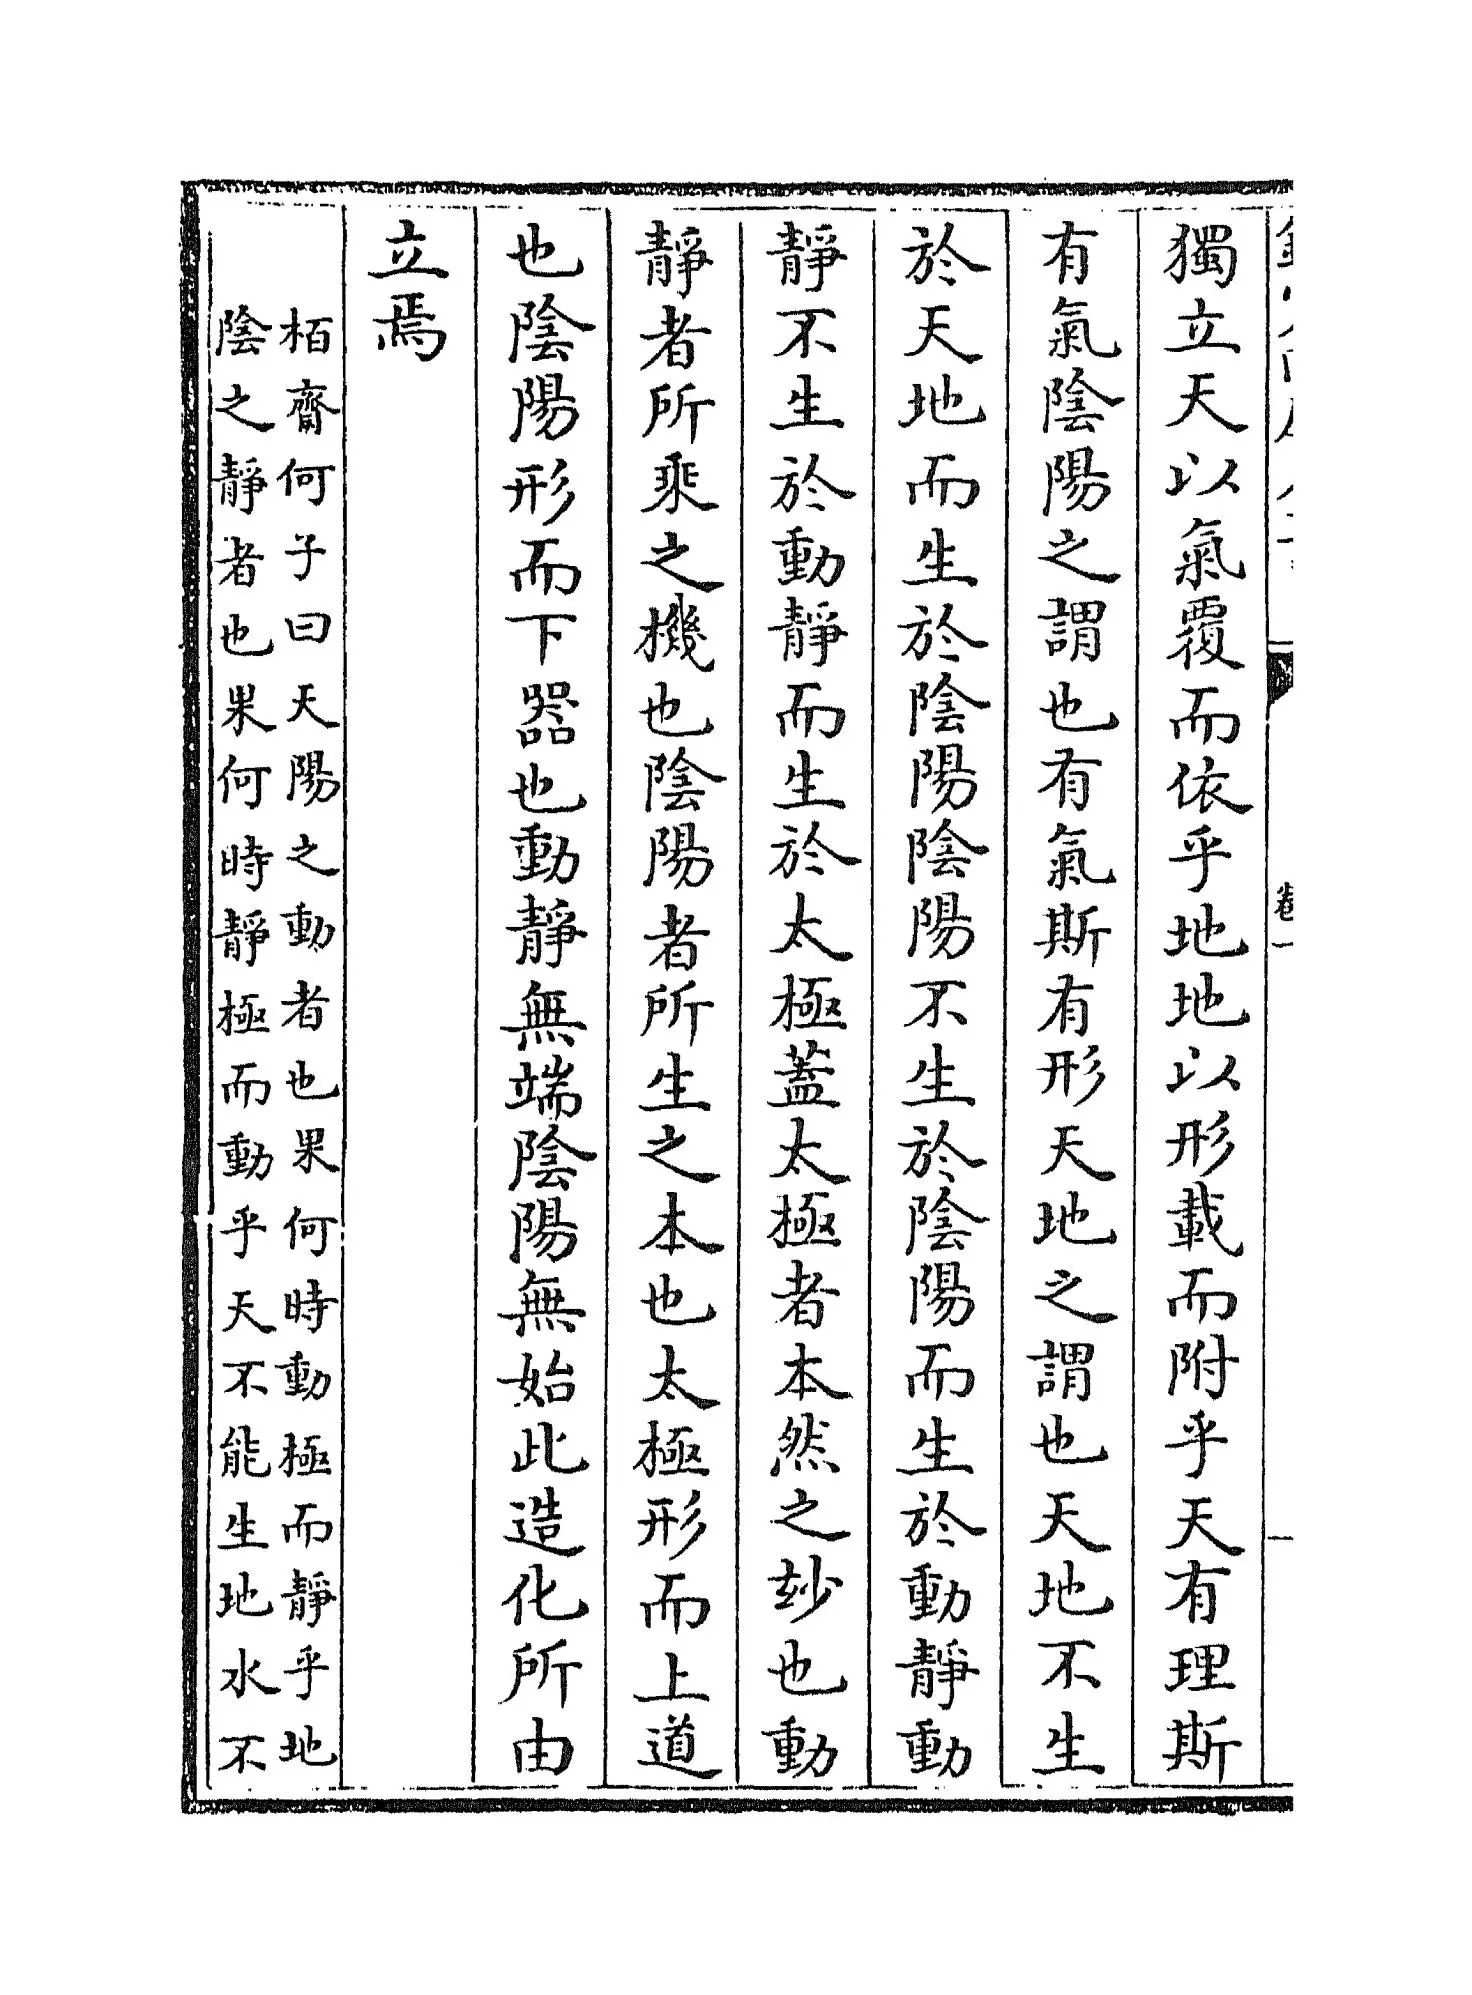 獨立天以氣覆而依乎地地以形載而附乎天有理斯
有氣陰陽之謂也有氣斯有形天地之謂也天地不生
於天地而生於陰陽陰陽不生於陰陽而生於動靜動
靜不生於動靜而生於太極蓋太極者本然之玅也動
靜者所乘之機也陰陽者所生之本也太極形而上道
也陰陽形而下器也動靜無端陰陽無始此造化所由
立焉
栢齋何子曰天陽之動者也果何時動極而靜乎地
陰之靜者也果何時靜極而動乎天不能生地水不
卷一